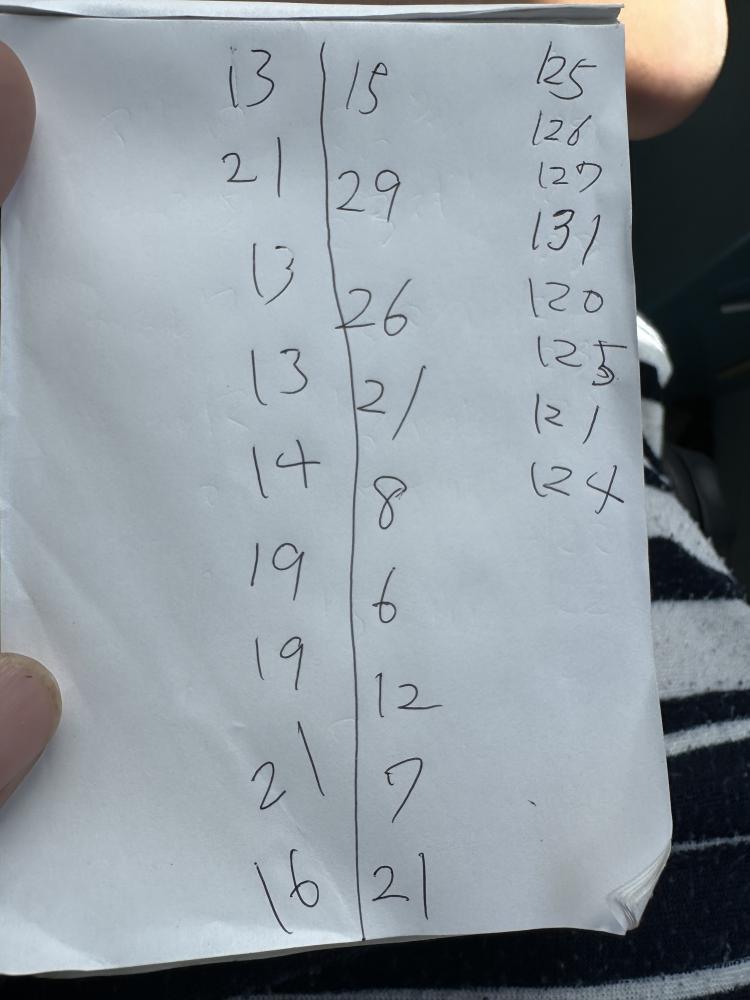 13 15 125
126
21 29 127
131
13 26 120
13 21 125
121
14 8 124
19 6
19 12
21 7
16 21